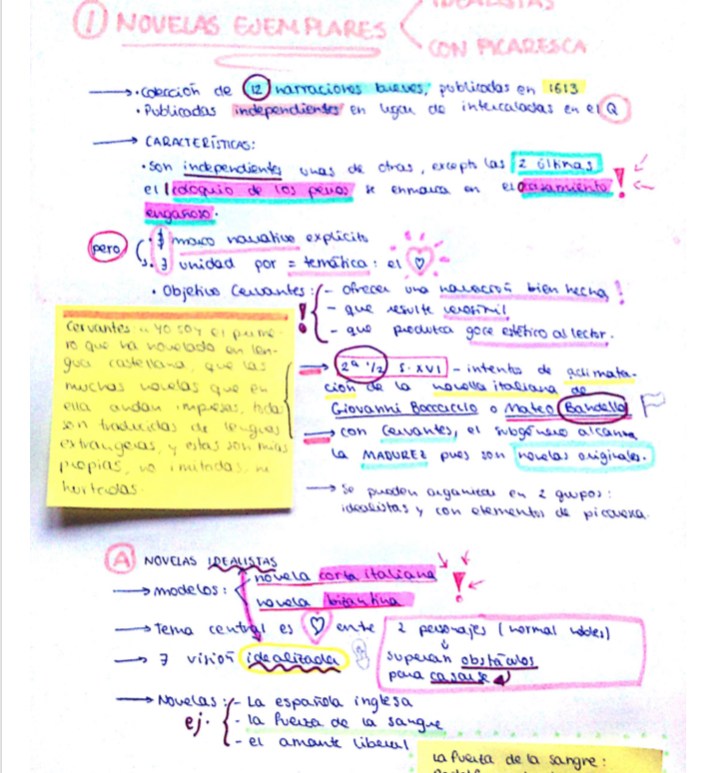 IDEALISTAS
① NOVELAS EJEMPLARES
CON PICARESCA
→ · Colección de 12 narraciones breves, publicadas en 1613
· Publicadas independientes en lugar de intercaladas en el Q
→ CARACTERÍSTICAS:
· Son independientes unas de otras, excepto las 2 últimas
el coloquio de los perros se enmarca en el casamiento !
engañoso.
pero · ∄ marco narrativo explícito
· ∃ unidad por = temática: el ♡
· Objetivo Cervantes: - ofrecer una narración bien hecha !
! - que resulte verosímil
- que produzca goce estético al lector.
Cervantes: "Yo soy el prime-
ro que ha novelado en len-
gua castellana, que las
muchas novelas que en
ella andan impresas, todas
son traducidas de lenguas
extrangeras, y estas son mías
propias, no imitadas, ni
hurtadas.
→ 2ª 1/2 S. XVI - intento de aclimata-
ción de la novella italiana de
Giovanni Boccaccio o Mateo Bandello
→ con Cervantes, el subgénero alcanza
la MADUREZ pues son novelas originales.
→ Se pueden organizar en 2 grupos:
idealistas y con elementos de picaresca.
Ⓐ NOVELAS IDEALISTAS
→ modelos: novela corta italiana !
novela bizantina
→ Tema central es ♡ entre 2 personajes (normal nobles)
→ ∃ visión idealizada
superan obstáculos
para casarse
→ Novelas: - La española inglesa
ej. - la fuerza de la sangre
- el amante liberal
La fuerza de la sangre: